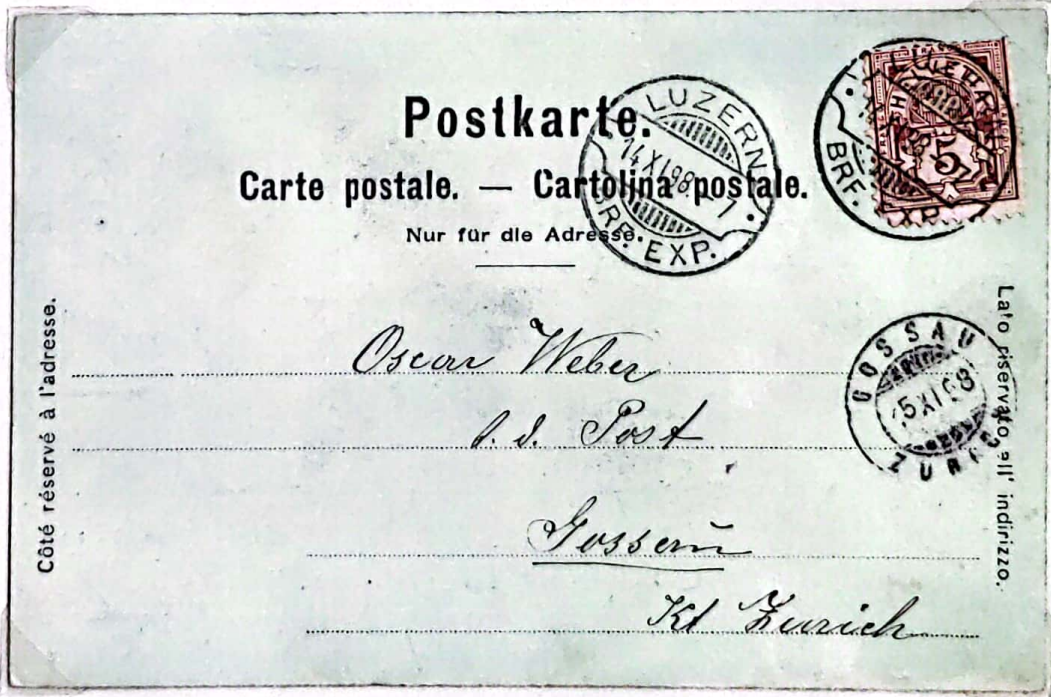 Postkarte.
Carte postale. — Cartolina postale.
Nur für die Adresse.
LUZERN
14 XI 98 - 7
BRF. EXP.
BRF. EXP.
5
GOSSAU
15 XI 98
ZÜRICH
Côté réservé à l'adresse.
Lato riservato all' indirizzo.
Oscar Weber
b. d. Post
Gossau
Kt Zürich